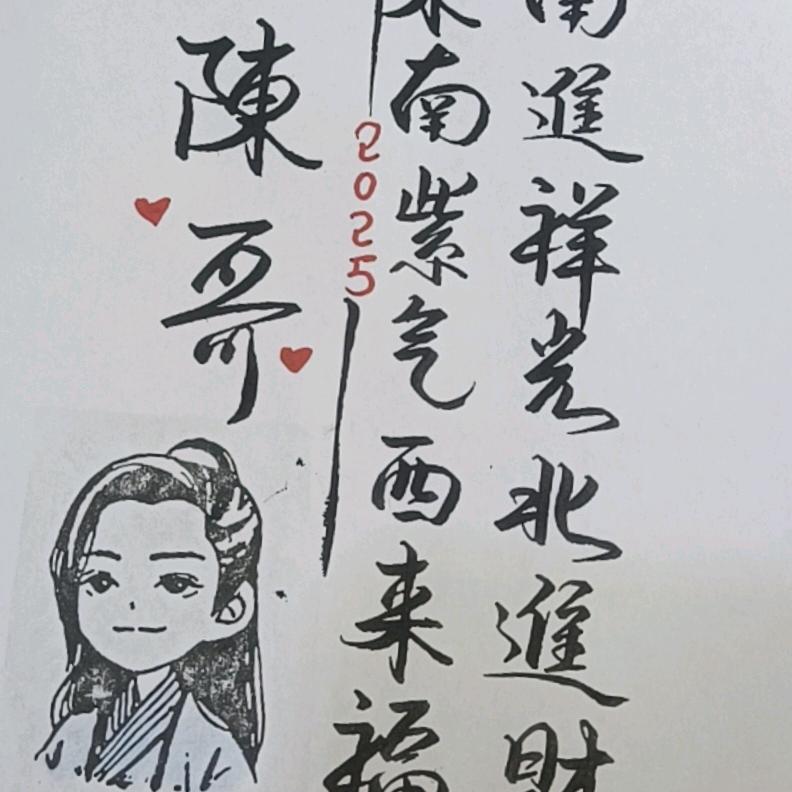 南進祥光北進財
南紫气西来福
2025
陳哥